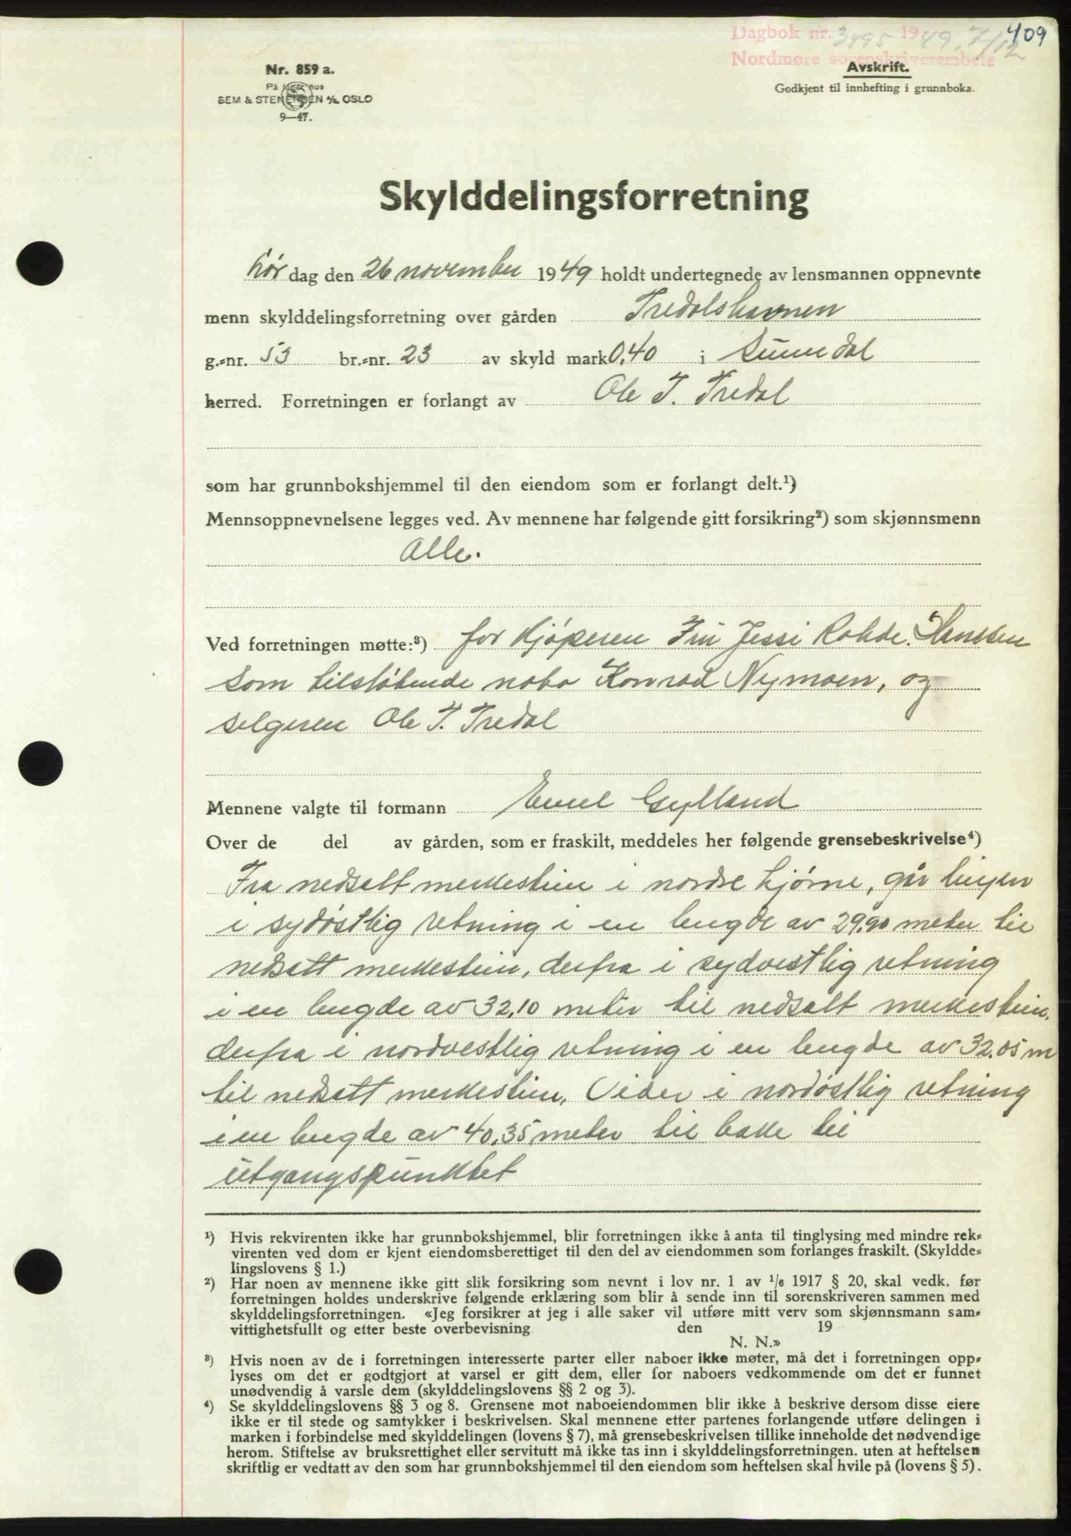 409
Dagbok nr. 3495 1949. 7/12
Nordmøre sorenskriverembete
Nr. 859 a.
På lager hos
SEM & STENERSEN A/S, OSLO
9—47.
Avskrift.
Godkjent til innhefting i grunnboka.
Skylddelingsforretning
Lør dag den 26 november 1949 holdt undertegnede av lensmannen oppnevnte
menn skylddelingsforretning over gården Tredalshavnen
g.-nr. 53 br.-nr. 23 av skyld mark 0,40 i Sunndal
herred. Forretningen er forlangt av Ole T. Tredal
som har grunnbokshjemmel til den eiendom som er forlangt delt.¹)
Mennsoppnevnelsene legges ved. Av mennene har følgende gitt forsikring²) som skjønnsmenn
Alle.
Ved forretningen møtte:³) for Kjøperen Fru Jessi Rohde. Hanssen
som tilstøtende nabo Konrad Nymoen, og
selgeren Ole T. Tredal
Mennene valgte til formann Emil Gylland
Over de del av gården, som er fraskilt, meddeles her følgende grensebeskrivelse⁴)
Fra nedsatt merkestein i nordre hjørne, går linjen
i sydøstlig retning i en lengde av 29.90 meter til
nedsatt merkestein, derfra i sydvestlig retning
i en lengde av 32,10 meter til nedsatt merkestein.
derfra i nordvestlig retning i en lengde av 32.05 m
til nedsatt merkestein. Videre i nordøstlig retning
i en lengde av 40,35 meter til bake til
utgangspunktet
¹) Hvis rekvirenten ikke har grunnbokshjemmel, blir forretningen ikke å anta til tinglysing med mindre rek-
virenten ved dom er kjent eiendomsberettiget til den del av eiendommen som forlanges fraskilt. (Skyldde-
lingslovens § 1.)
²) Har noen av mennene ikke gitt slik forsikring som nevnt i lov nr. 1 av ¹/₆ 1917 § 20, skal vedk. før
forretningen holdes underskrive følgende erklæring som blir å sende inn til sorenskriveren sammen med
skylddelingsforretningen. «Jeg forsikrer at jeg i alle saker vil utføre mitt verv som skjønnsmann sam-
vittighetsfullt og etter beste overbevisning den 19
N. N.»
³) Hvis noen av de i forretningen interesserte parter eller naboer ikke møter, må det i forretningen opp-
lyses om det er godtgjort at varsel er gitt dem, eller for naboers vedkommende om det er funnet
unødvendig å varsle dem (skylddelingslovens §§ 2 og 3).
⁴) Se skylddelingslovens §§ 3 og 8. Grensene mot naboeiendommen blir ikke å beskrive dersom disse eiere
ikke er til stede og samtykker i beskrivelsen. Skal mennene etter partenes forlangende utføre delingen i
marken i forbindelse med skylddelingen (lovens § 7), må grensebeskrivelsen tillike inneholde det nødvendige
herom. Stiftelse av bruksrettighet eller servitutt må ikke tas inn i skylddelingsforretningen, uten at heftelsen
skriftlig er vedtatt av den som har grunnbokshjemmel til den eiendom som heftelsen skal hvile på (lovens § 5).